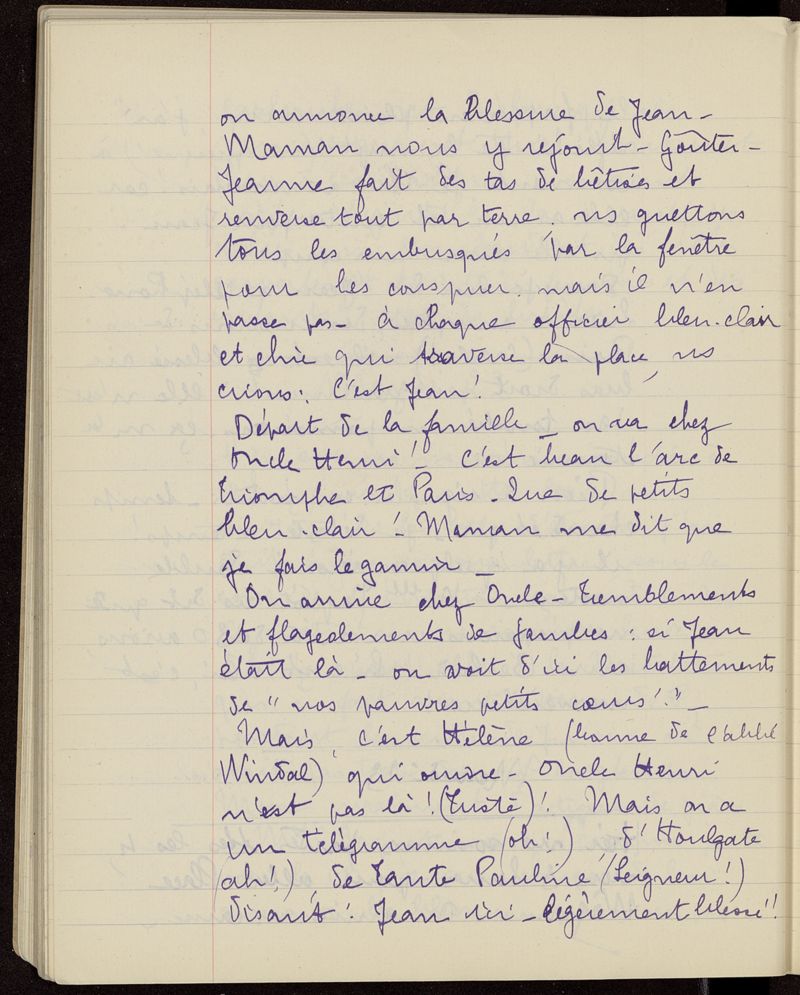 on annonce la blessure de Jean –
Maman nous y rejoint – Goûter –
Jeanne fait des tas de bêtises et
renverse tout par terre, ns guettons
tous les embusqués par la fenêtre
pour les conspuer. mais il n'en
passe pas – à chaque officier bleu-clair
et chic qui traverse la place, ns
crions : C'est Jean !
Départ de la famille – on va chez
Oncle Henri ! – C'est beau l'arc de
Triomphe et Paris – Que de petits
bleu-clair ! – Maman me dit que
je fais le gamin –
On arrive chez Oncle – Tremblements
et flageolements de jambes : si Jean
était là – on voit d'ici les battements
de "nos pauvres petits cœurs !" –
Mais, c'est Hélène (bonne de l'abbé
Windal) qui ouvre – Oncle Henri
n'est pas là ! (Zuste) ! Mais on a
un télégramme (oh !) d'Houlgate
(ah !) de Tante Pauline (Seigneur !)
disant : Jean ici – légèrement blessé !!